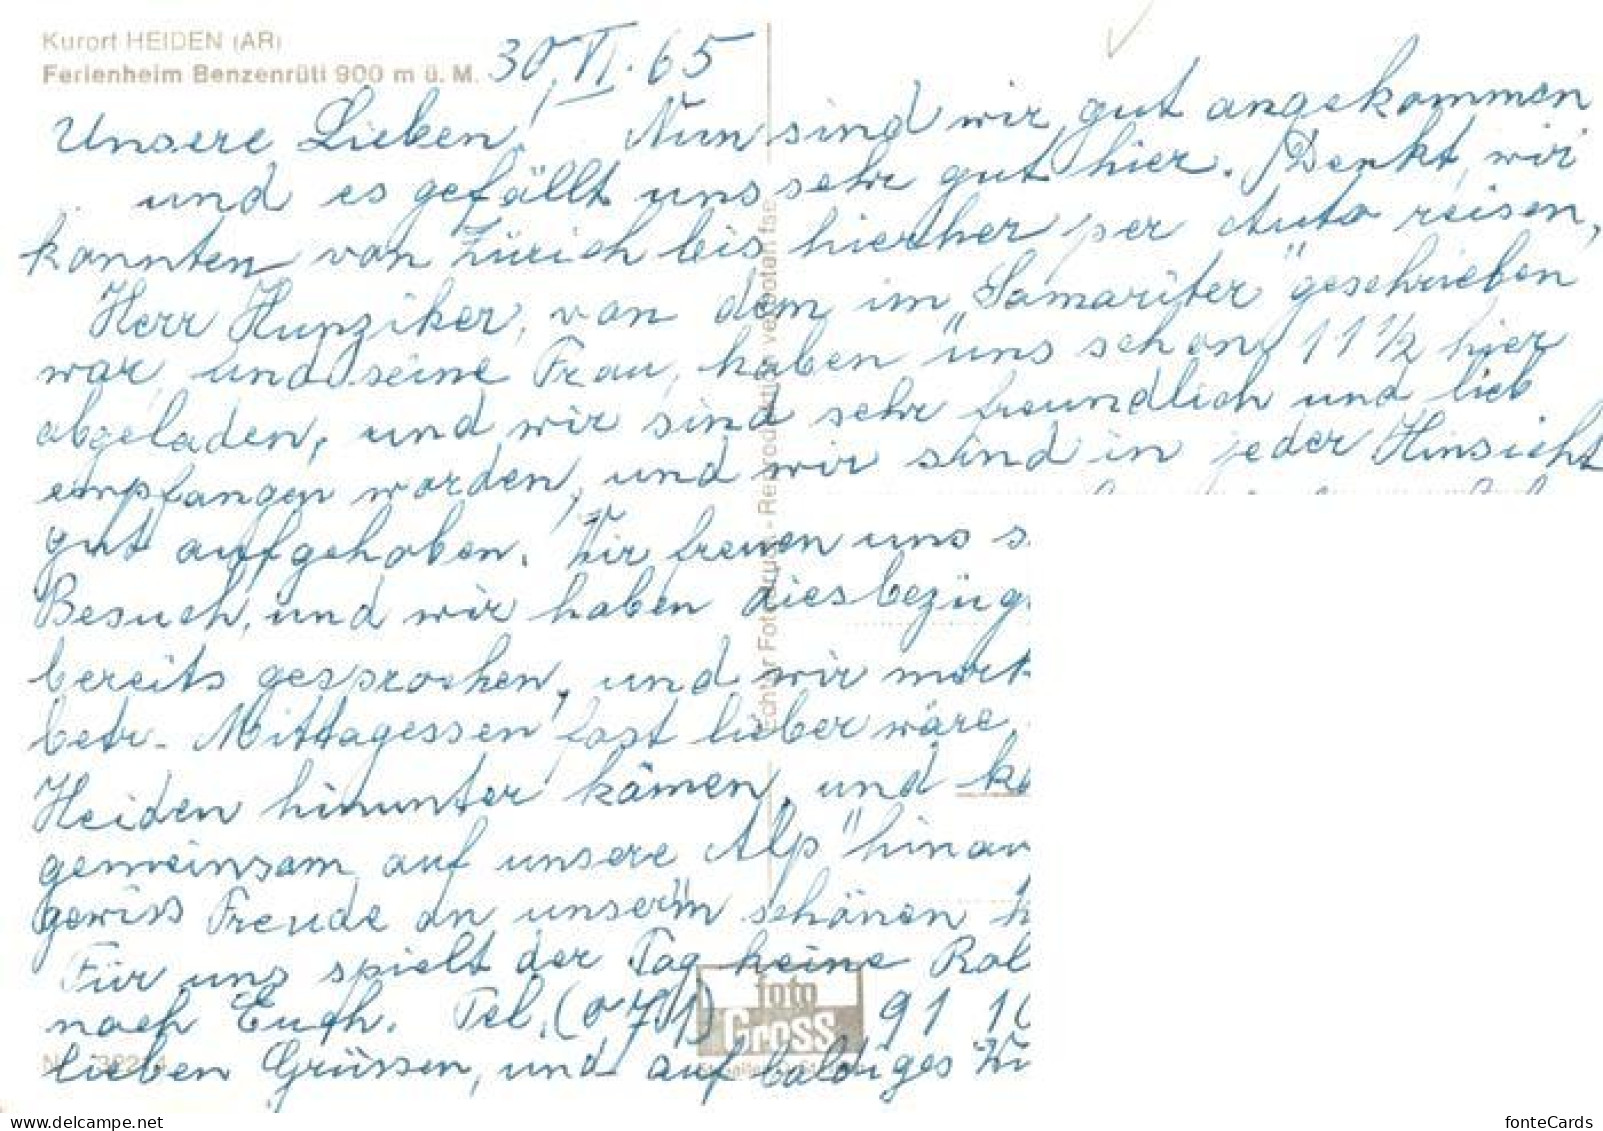 Kurort HEIDEN (AR)
Ferienheim Benzenrüti 900 m ü. M.
30. VI. 65
Unsere Lieben! Nun sind wir gut angekommen
und es gefällt uns sehr gut hier. Denkt, wir
konnten von Zürich bis hierher per Auto reisen,
Herr Hunziker, von dem im „Samariter" geschrieben
war, und seine Frau, haben uns schon 11 1/2 hier
abgeladen, und wir sind sehr freundlich und lieb
empfangen worden, und wir sind in jeder Hinsicht
gut aufgehoben. Wir freuen uns s
Besuch, und wir haben diesbezüg
bereits gesprochen, und wir
betr. Mittagessen fast lieber wäre
Heiden hinunter kämen, und
gemeinsam auf unsere Alp" hinau
gewiss Freude an unserm schönen
Für uns spielt der Tag keine Rol
nach Euch. Tel. (071) 91 1
lieben Grüssen, und auf baldiges Wi
Echter Fotodruck - Reproduktion verboten
foto
Gross
www.delcampe.net
fonteCards